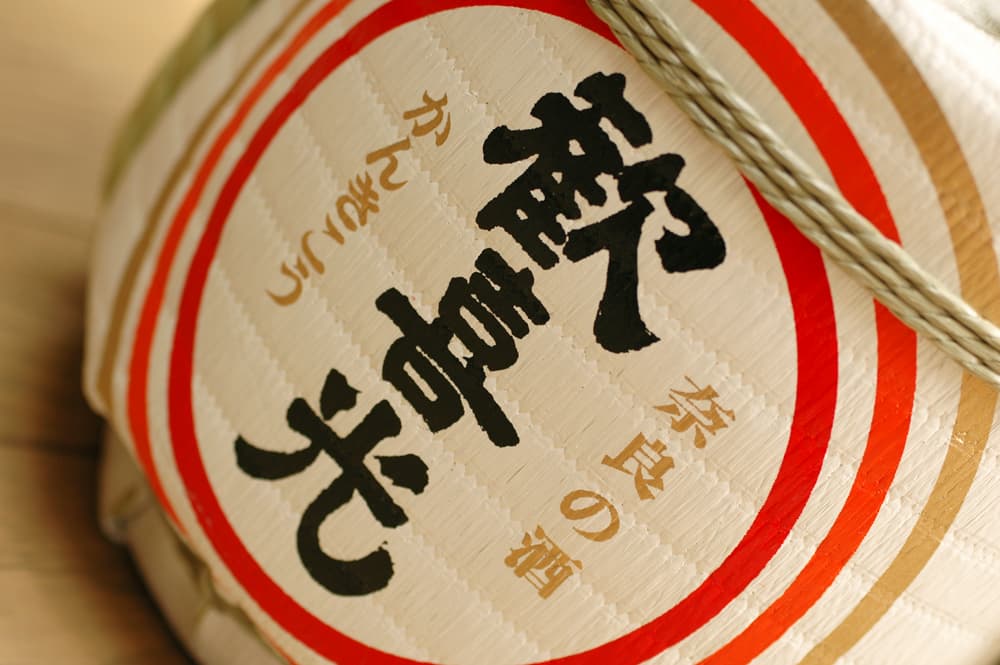 奈良の酒
歓喜光
かんきこう